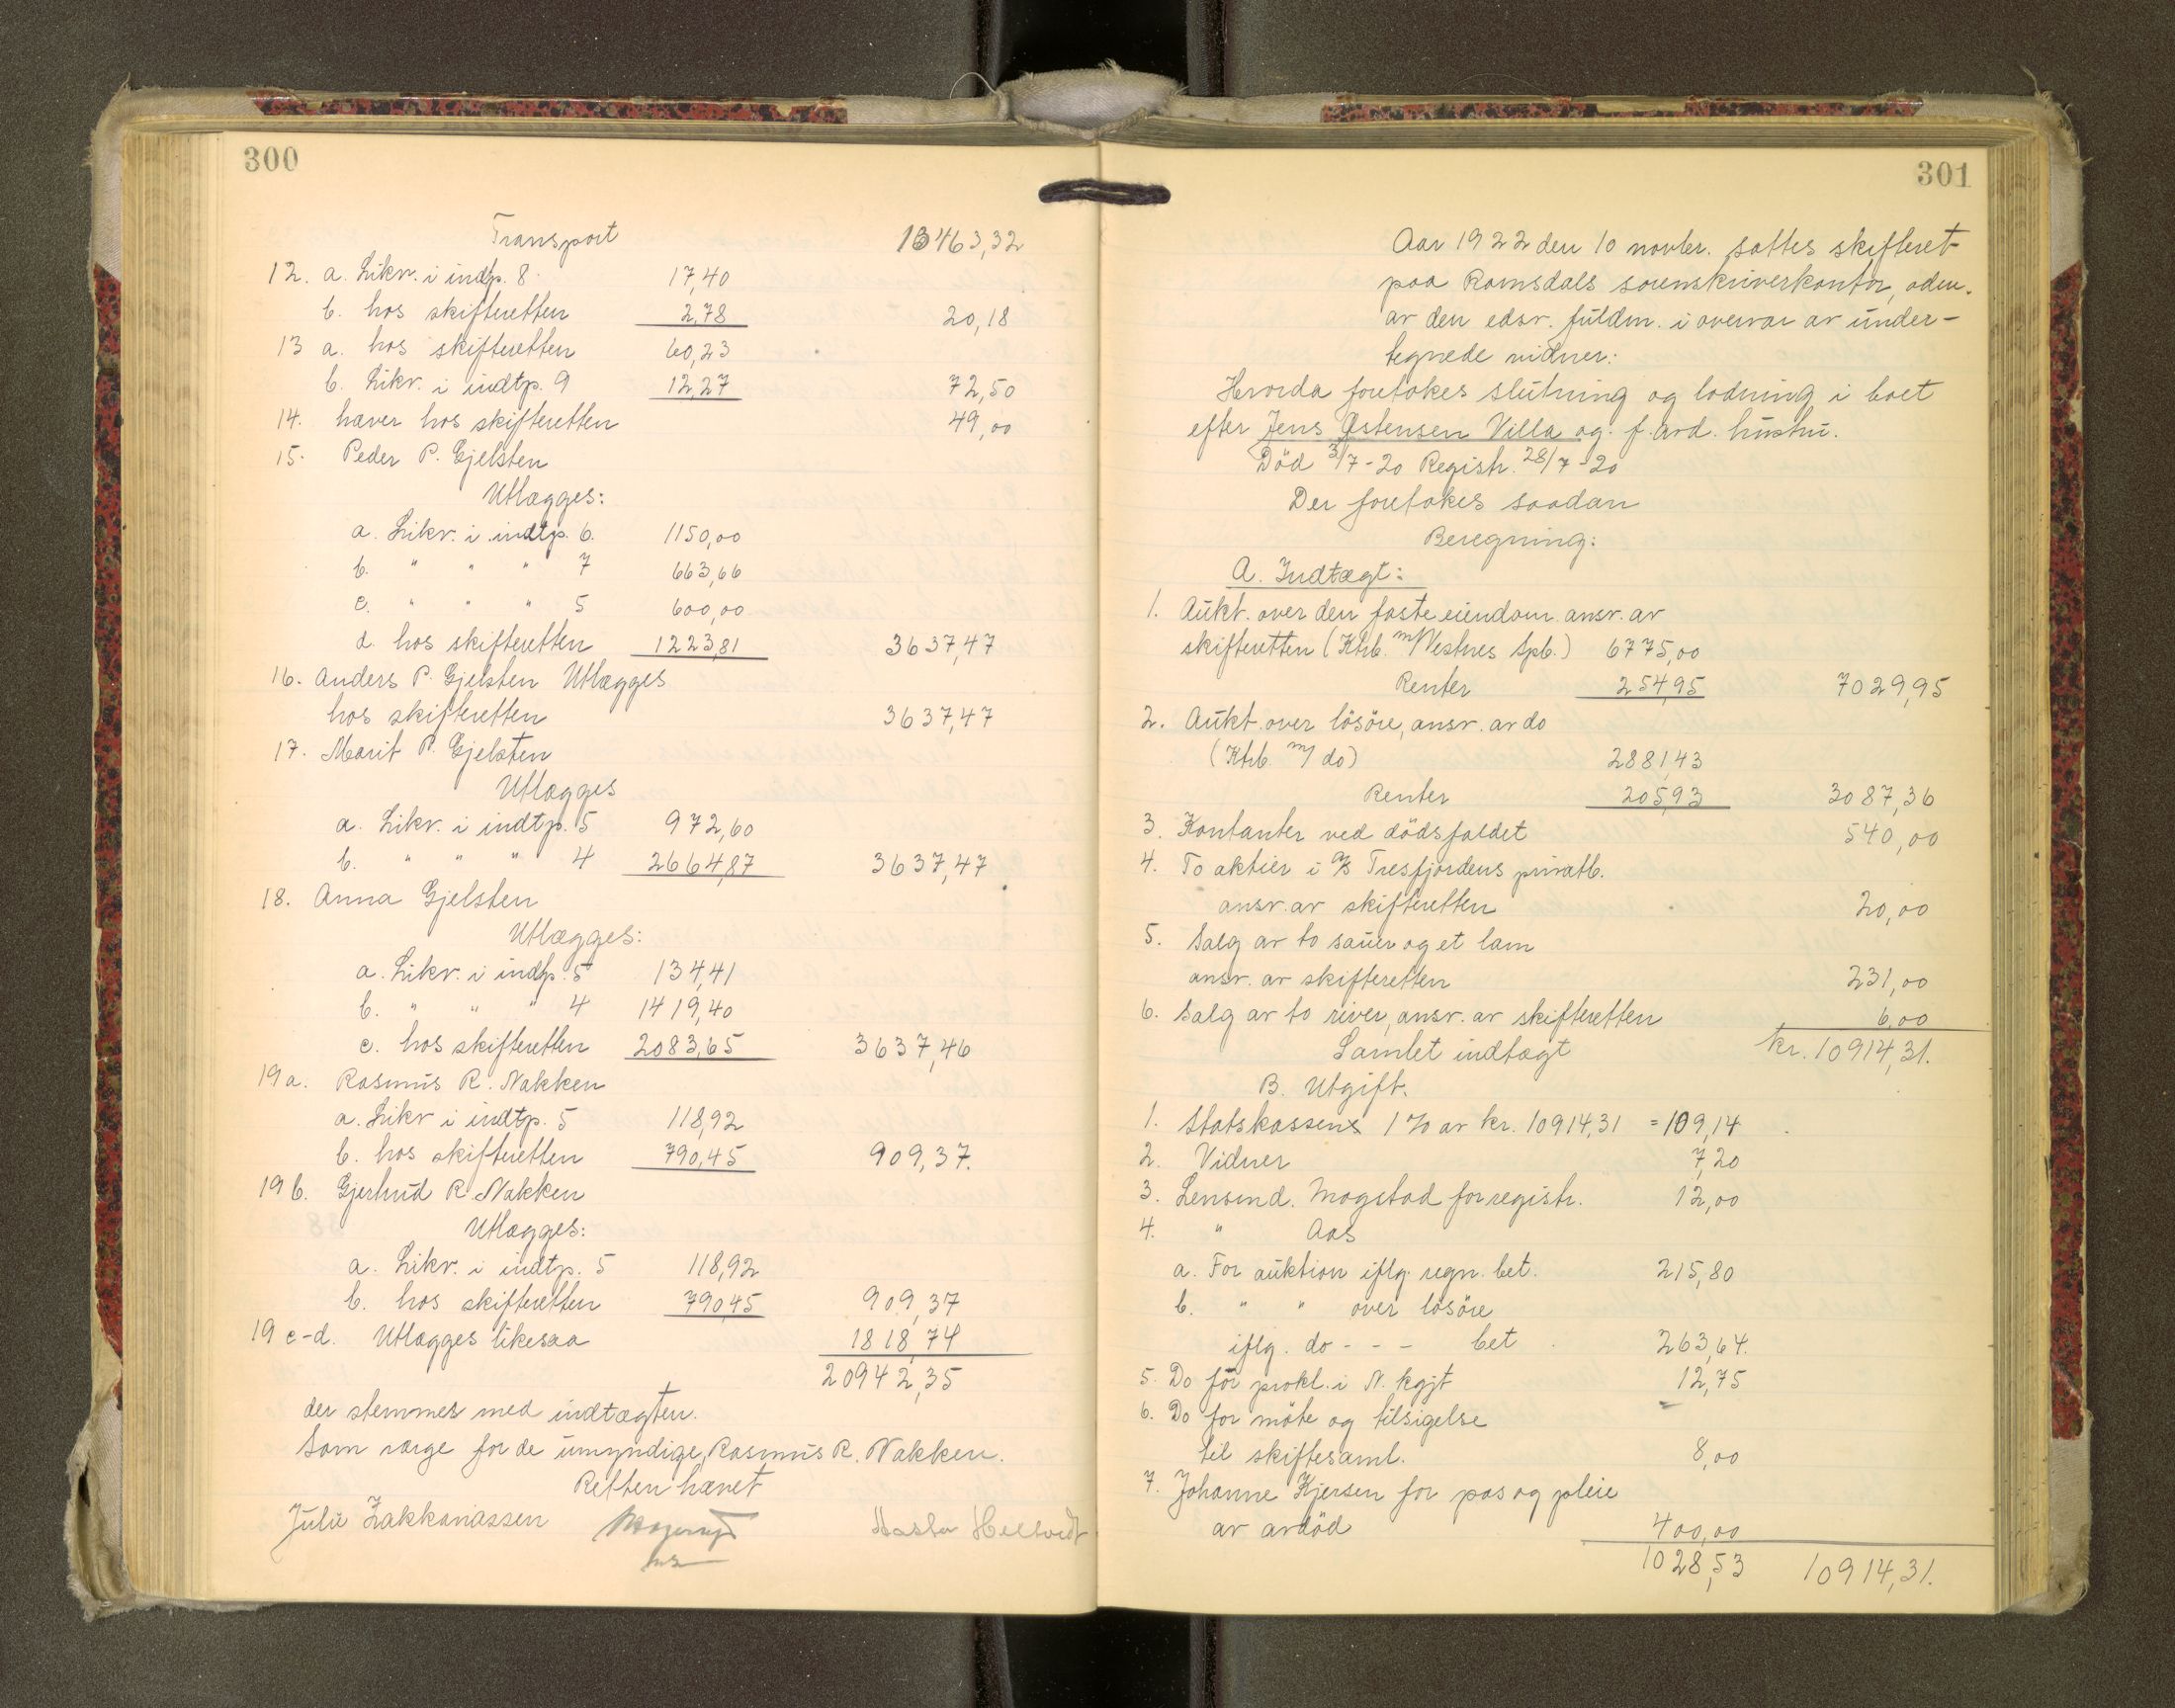 300
Transport 13463,32
12. a. Likv. i indtp. 8 17,40
b. hos skifteretten 2,78 20,18
13 a. hos skifteretten 60,23
b. Likv. i indtp. 9 12,27 72,50
14. haver hos skifteretten 49,00
15. Peder P. Gjelsten
Utlægges:
a. Likv. i indtp. 6. 1150,00
b. " " " 7 663,66
c. " " " 5 600,00
d. hos skifteretten 1223,81 3637,47
16. Anders P. Gjelsten Utlægges
hos skifteretten 3637,47
17. Marit P. Gjelsten
Utlægges
a. Likv. i indtp. 5 972,60
b. " " " 4 2664,87 3637,47
18. Anna Gjelsten
Utlægges:
a. Likv. i indtp. 5 134,41
b. " " " 4 1419,40
c. hos skifteretten 2083,65 3637,46
19a. Rasmus R. Nakken
a. Likv i indtp. 5 118,92
b. hos skifteretten 790,45 909,37.
19b. Gjertrud R. Nakken
Utlægges:
a. Likv. i indtp. 5 118,92
b. hos skifteretten 790,45 909,37
19 c-d. Utlægges likesaa 1818,74
20942,35
der stemmer med indtægten.
Som værge for de umyndige, Rasmus R. Nakken.
Retten hævet
Julie Zakkariassen
301
Aar 1922 den 10 novbr. sattes skifteret
paa Romsdals sorenskriverkontor, adm.
av den edsv. fuldm. i overvær av under-
tegnede vidner:
Hvorda foretokes slutning og lodning i boet
efter Jens Østensen Villa og f. avd. hustru.
Død 3/7-20 Registr. 28/7-20
Der foretokes saadan
Beregning:
A. Indtægt:
1. Aukt. over den faste eiendom ansv. av
skifteretten (Ktrb. m/ Vestnes Spb.) 6775,00
Renter 254,95 7029,95
2. Aukt. over løsøre, ansv. av do
(Ktrb. m/ do) 2881,43
Renter 205,93 3087,36
3. Kontanter ved dødsfaldet 540,00
4. To aktier i A/S Tresfjordens privatb.
ansv. av skifteretten 20,00
5. Salg av to sauer og et lam
ansv. av skifteretten 231,00
6. Salg av to river, ansv. av skifteretten 6,00
Samlet indtægt kr. 10914,31.
B. Utgift.
1. Statskassens 1 % av kr. 10914,31 = 109,14
2. Vidner 7,20
3. Lensmd. Mogstad for registr. 12,00
4. " Aas
a. For auktion iflg. regn. bet. 215,80
b. " " over løsøre
iflg. do - - - bet 263,64.
5. Do for prokl. i N. kgjt 12,75
6. Do for møte og tilsigelse
til skiftesaml. 8,00
7. Johanne Kjersen for pas og pleie
av avdød 400,00
1028,53 10914,31.